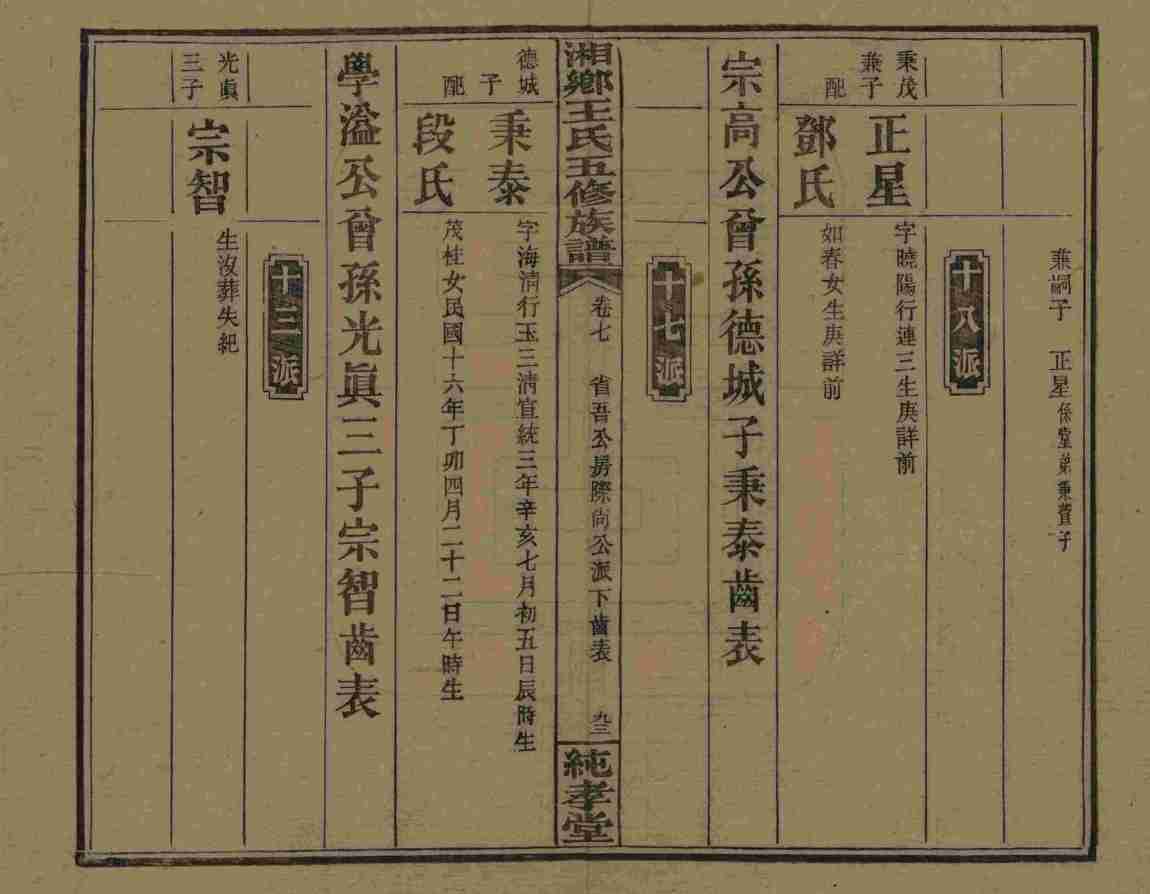 兼嗣子　正星係堂弟秉萱子
十八派
秉茂兼子
正星
字曉陽行連三生庚詳前
配
鄧氏
如春女生庚詳前
宗高公曾孫德城子秉泰齒表
十七派
湘鄉王氏五修族譜
卷七　省吾公房際尚公派下齒表　九三
純孝堂
德城子
秉泰
字海清行玉三清宣統三年辛亥七月初五日辰時生
配
段氏
茂桂女民國十六年丁卯四月二十二日午時生
學溢公曾孫光眞三子宗智齒表
十三派
光眞三子
宗智
生沒葬失紀